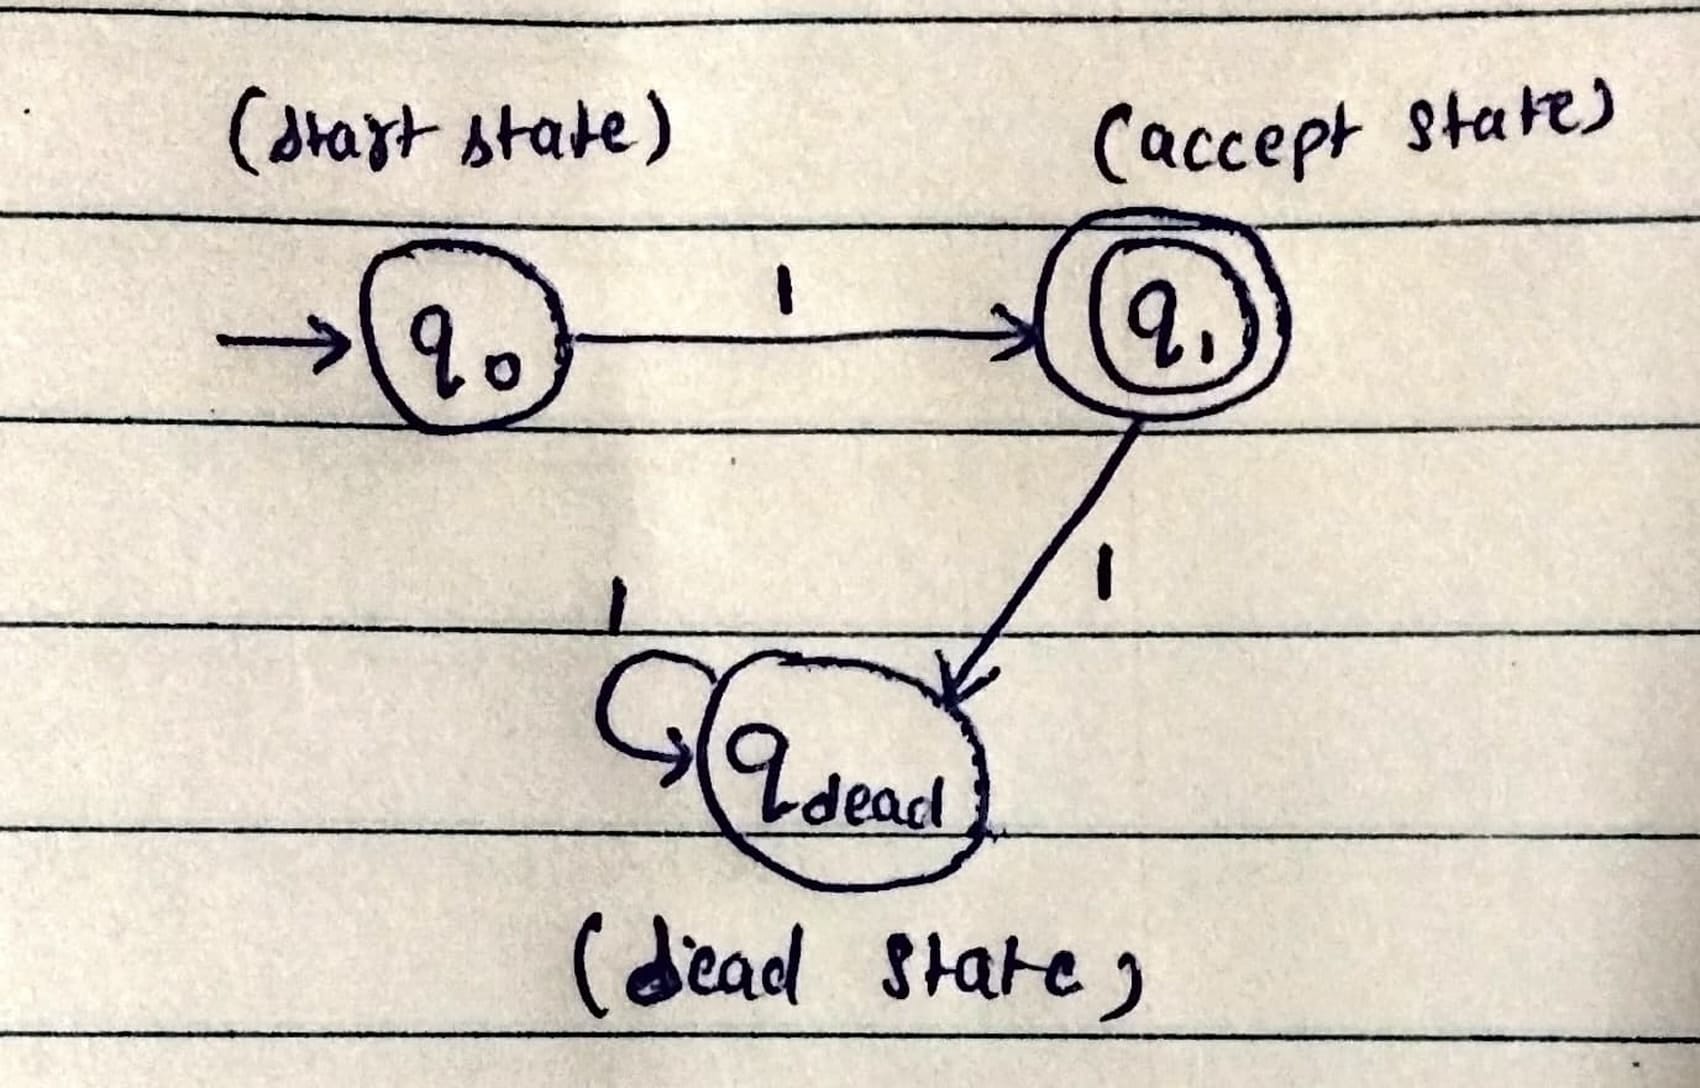 (start state)
(accept state)
q0
1
q1
1
1
qdead
(dead state)